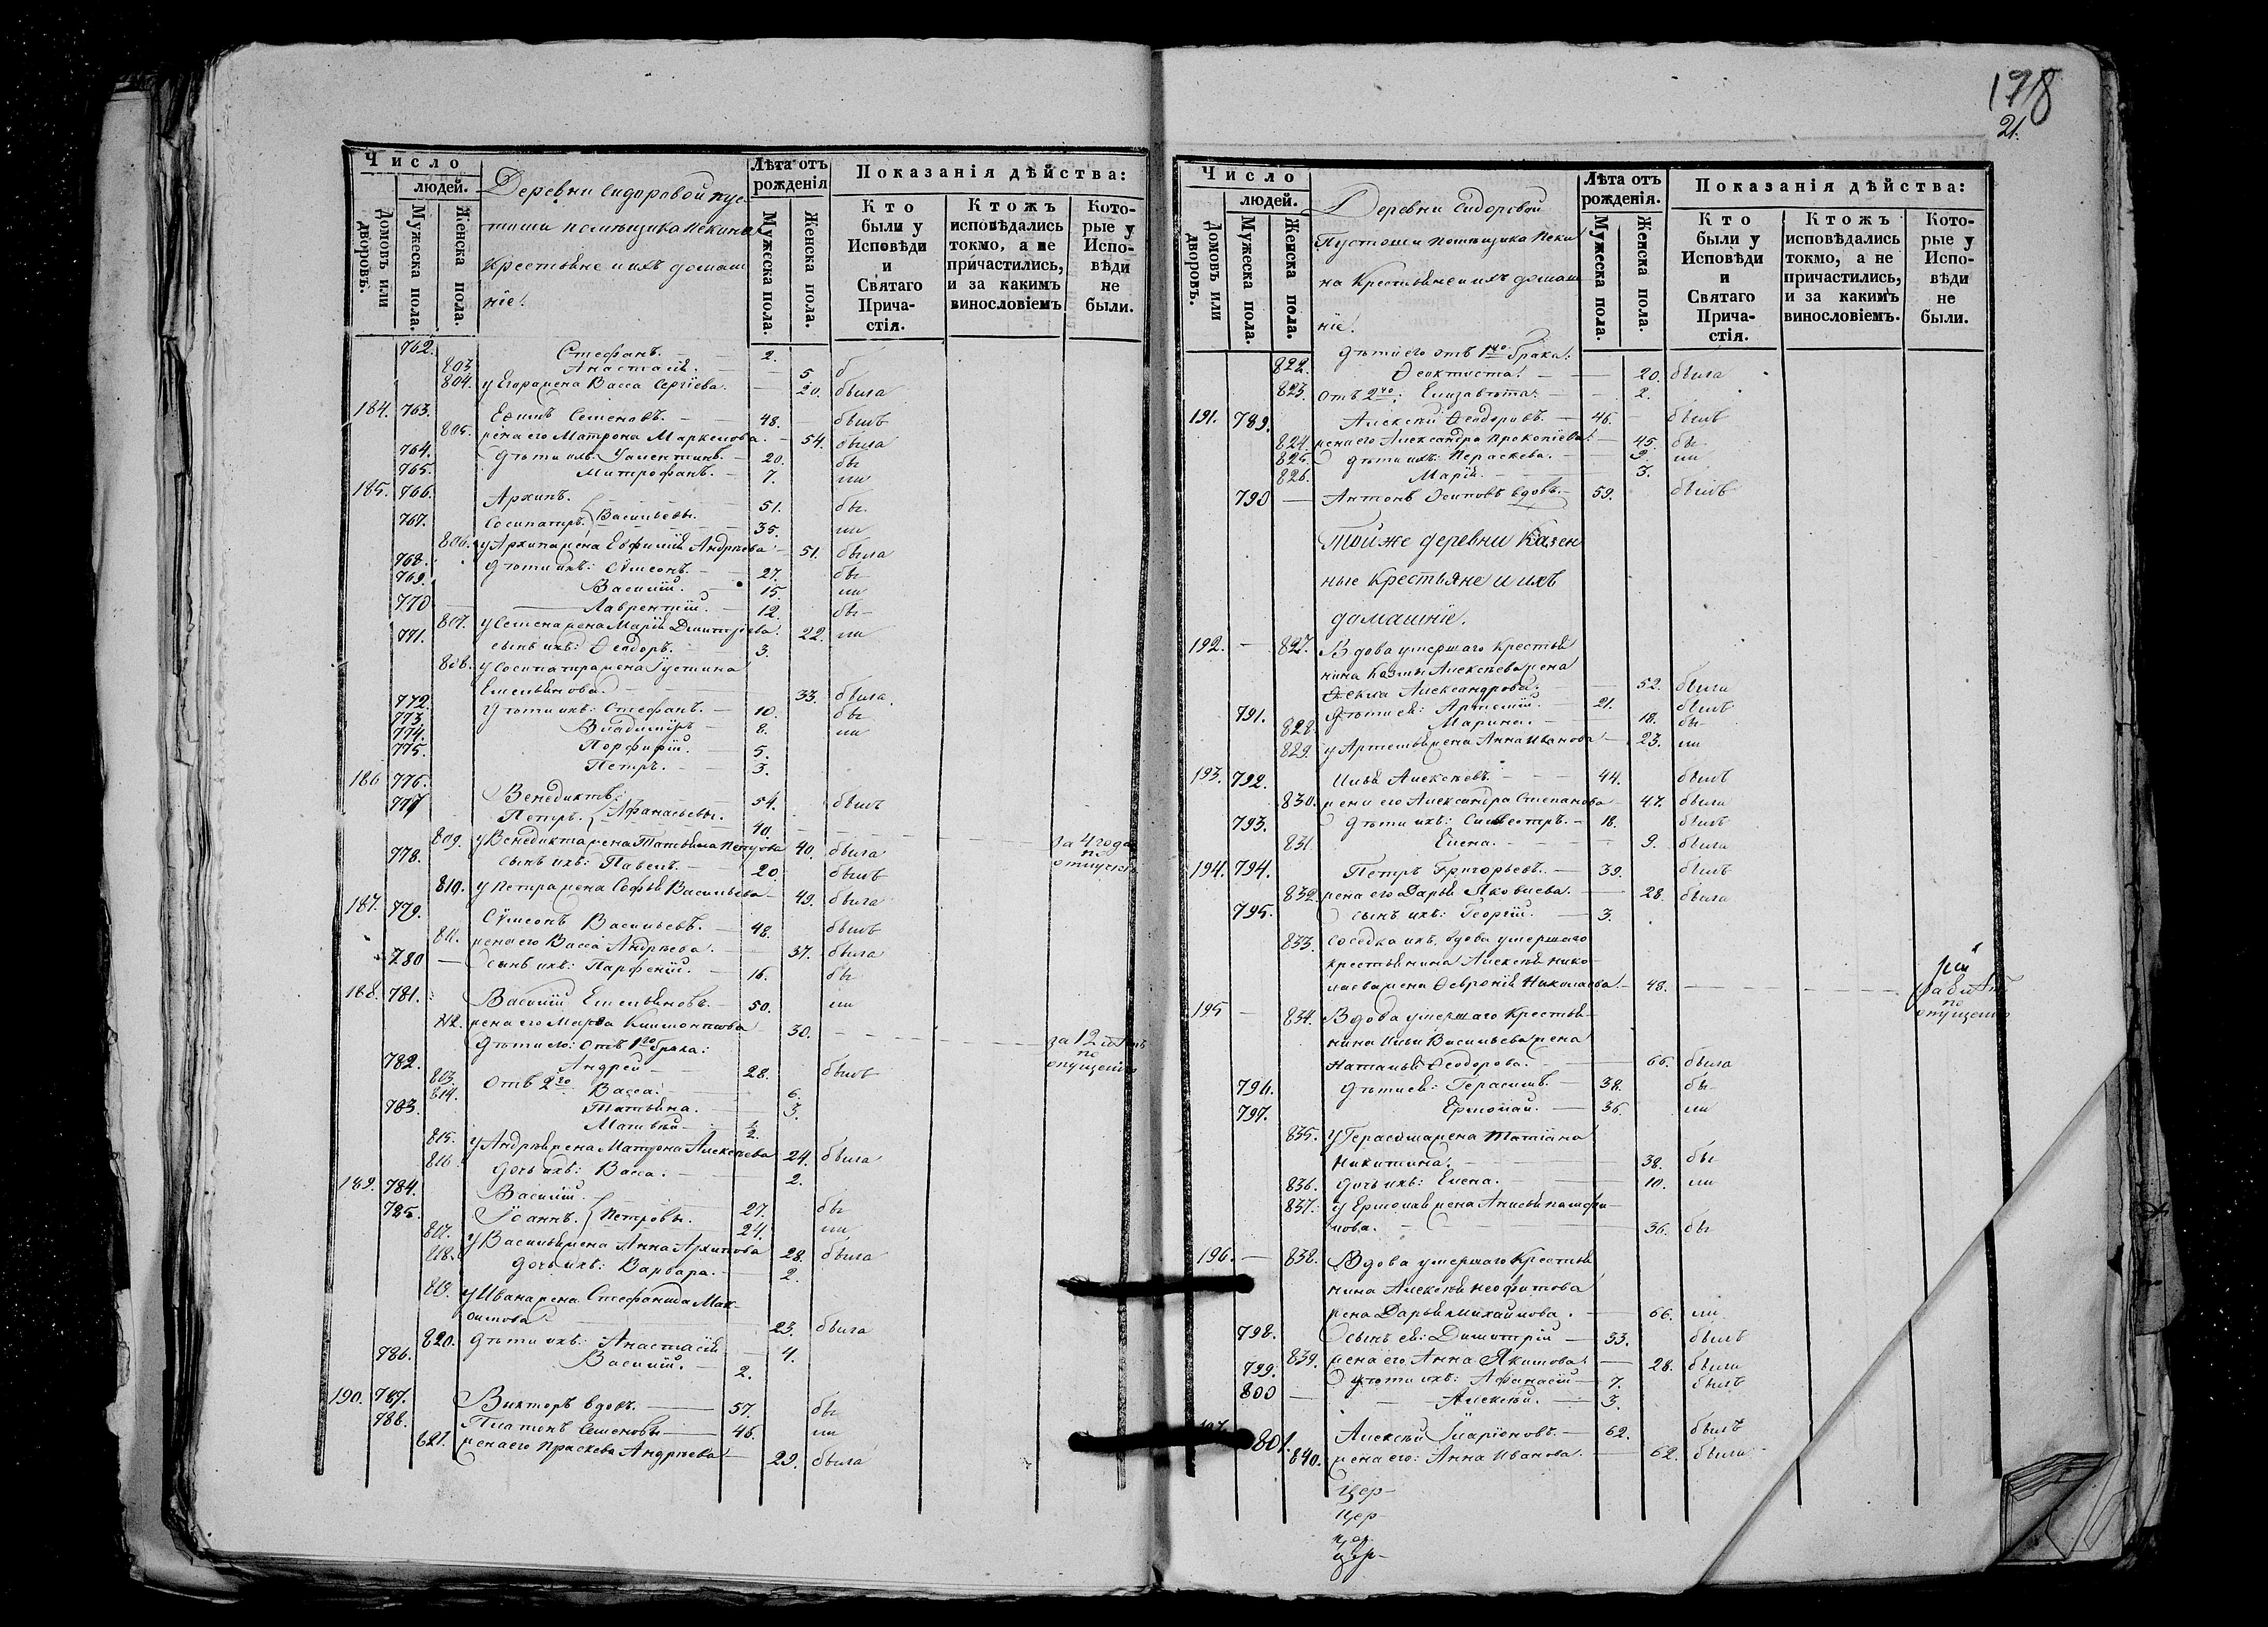 Число
людей.
Домовъ или дворовъ.
Мужеска пола.
Женска пола.
Деревни Сидоровой пус-
тоши помѣщика Пекина
Крестьяне и ихъ домаш
ніе.
Лѣта отъ рожденія
Мужеска пола.
Женска пола.
Показанія дѣйства:
Кто были у Исповѣди и Святаго Прича-стія.
Ктожъ исповѣдались токмо, а не причастились, и за какимъ винословіемъ
Кото-рые у Испо-вѣди не были.
762. Стефанъ. 2.
803. Анастасія. 5 б
804. у Егора жена Васса Сергіева. 20. была
184. 763. Ефимъ Семеновъ. 48. былъ
805. жена его Матрона Маркелова. 54. была
764. дѣти ихъ: Уалентинъ. 20. бы
765. Митрофанъ. 7. ли
185. 766. Архипъ. 51. бы
767. Сосипатръ. Васильевы. 35. ли
806. у Архипа жена Евфимія Андрѣева 51. была
768. дѣти ихъ: Сѵмеонъ. 27. бы
769. Василій. 15. ли
770 Лаврентій. 12. бы
807. у Семена жена Марія Дмитріева. 22. ли
771. сынъ ихъ: Ѳеодоръ. 3.
808. у Сосипатра жена Іустина
Емельянова. 33. была.
772. дѣти ихъ: Стефанъ. 10. бы
773. Владиміръ 8. ли
774. Порфирій. 5.
775. Петръ. 3.
186 776. Венедиктъ. 54. былъ
777 Петръ. Афанасьевы. 40.
809. у Венедикта жена Татьяна Петрова 40. была за 4 года по опущенію
778. сынъ ихъ: Павелъ. 20. былъ
810. у Петра жена Софья Васильева 49. была
187. 779. Сѵмеонъ Васильевъ. 48. былъ
811. жена его Васса Андрѣева. 37. была
780 сынъ ихъ: Парфеній. 16. бы
188. 781. Василій Емельяновъ. 50. ли
812. жена его Марѳа Климонтова 30. за 12 лѣтъ по опущенію
дѣти его: отъ 1го брака:
782. Андрей 28. былъ
813. отъ 2го Васса. 6.
814. Татьяна. 3.
783. Матвѣй 1/2.
815. у Андрѣя жена Матрона Алексѣева 24. была
816 дочь ихъ: Васса. 2.
189. 784. Василій. 27. бы
785. Іоаннъ. Петровы. 24. ли
817. у Василья жена Анна Архипова 28. была
818. дочь ихъ: Варвара. 2.
819. у Ивана жена Стефанида Мак-
симова 23. была
820. дѣти ихъ: Анастасія 4.
786. Василій. 2.
190. 787. Викторъ вдовъ. 57. бы
788. Платонъ Семеновы 46. ли
821. жена его Праскева Андрѣева 29. была
198
21.
Число
людей.
Домовъ или дворовъ.
Мужеска пола.
Женска пола.
Деревни Сидоровой
Пустоши помѣщика Пеки
на Крестьяне и ихъ домаш
ніе.
Лѣта отъ рожденія.
Мужеска пола.
Женска пола.
Показанія дѣйства:
Кто были у Исповѣди и Святаго Прича-стія.
Ктожъ исповѣдались токмо, а не причастились, и за какимъ винословіемъ.
Кото-рые у Испо-вѣди не были.
дѣти его отъ 1го брака.
822. Ѳеоктиста. 20. была
823. отъ 2го: Елизавѣта. 2.
191. 789. Алексѣй Ѳеодоровъ. 46. былъ
824. жена его Александра Прокопіева. 45. бы
825. дѣти ихъ: Параскева. 9. ли
826. Марія. 3.
790 Антонъ Осиповъ вдовъ. 59. былъ
Той же деревни Казен
ные Крестьяне и ихъ
домашніе.
192. 827. Вдова умершаго крестья
нина Казмы Алексѣева жена
Ѳекла Александрова. 52. была
791. дѣти ея: Артемій. 21. былъ
828. Марина. 18. бы
829. у Артемья жена Анна Иванова 23. ли
193. 792. Илья Алексѣевъ. 44. былъ
830. жена его Александра Степанова 47. была
793. дѣти ихъ: Сильвестръ. 18. былъ
831. Елена. 9. была
194. 794. Петръ Григорьевъ. 39. былъ
832. жена его Дарья Яковлева. 28. была
795. сынъ ихъ: Георгій. 3.
833. соседка ихъ, вдова умершаго
крестьянина Алексѣя Нико-
лаева жена Ѳевронія Николаева. 48. по опущенію
195 834. Вдова умершаго крестья-
нина Ильи Васильева жена
Наталья Ѳеодорова. 66. была
796. дѣти ея: Герасимъ. 38. бы
797. Ермолай. 36. ли
835. у Герасима жена Татіана
Никитина. 38. бы
836. дочь ихъ: Елена. 10. ли
837. у Ермолая жена Анисья Памфи-
лова. 36. бы
196. 838. Вдова умершаго крестья
нина Алексѣя Неофитова
жена Дарья Михайлова. 66. ли
798. сынъ ея: Димитрій 33. былъ
839. жена его Анна Якимова. 28. была
799. дѣти ихъ: Афанасій 7. былъ
800 Алексѣй. 3.
197 801. Алексѣй Иларіоновъ. 62. былъ
840. жена его: Анна Иванова. 62. была
Цер-
Цер
цер
цер-